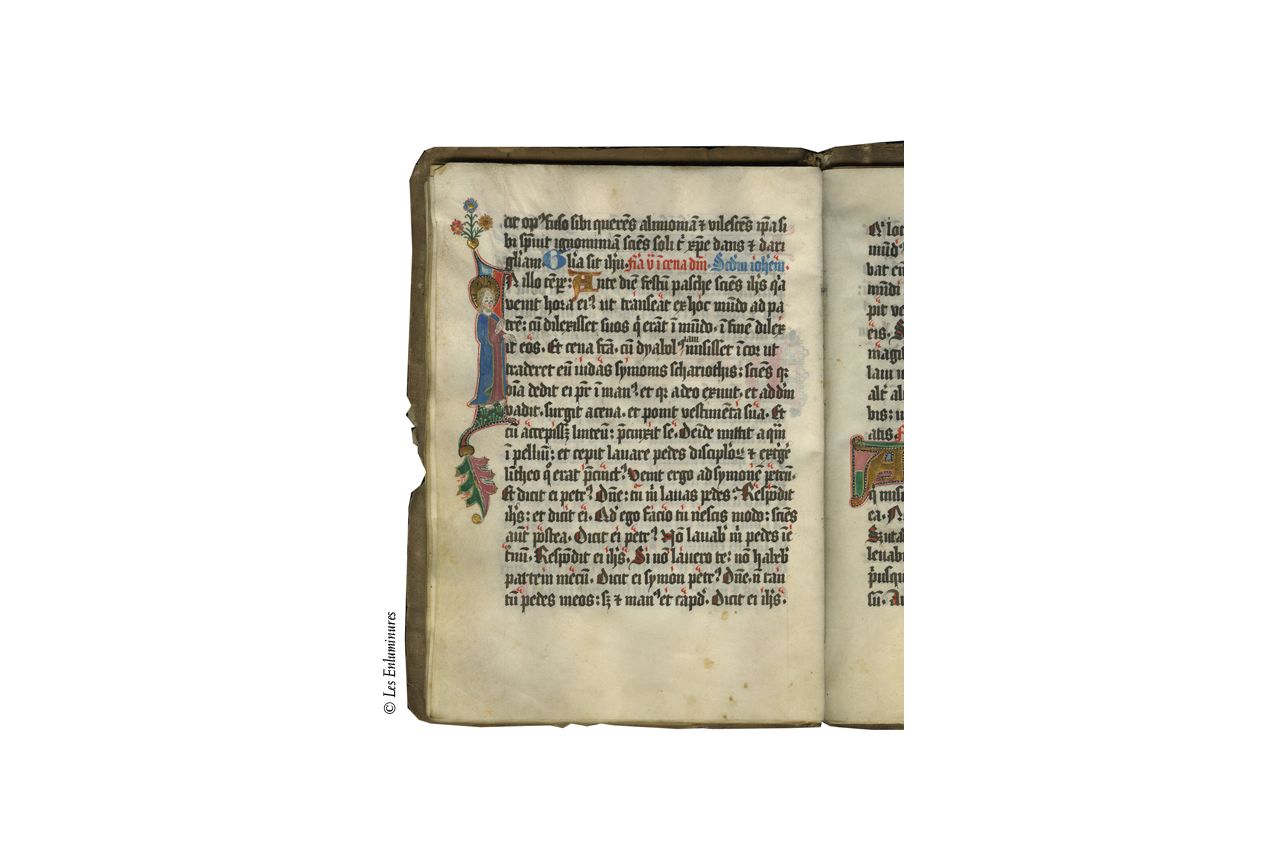 cit opꝰ fuso sibi querēs alimoniā ⁊ vilescēs ip̄a si
bi sp̄nit ignominiā sciēs soli t̄ xp̄e dans ⁊ dari
gl̄iam. Gl̓ia sit ih̄u. fīa v̄ ī cena dn̄i. Scdm̄ ioh̓em.
N illo tēpr̄: Ante diē festū pasche sciēs ih̄s q̓a
venit hora eiꝰ ut trāseāt ex hoc mūdo ad pa
trē: cū dilexisset suos q̓ erāt ī mūdo, ī finē dilex
it eos. Et cena fc̄ā. cū dyabolꝰ iam misisset ī cor ut
traderet eū iudas symonis schariothis: sciēs qꝛ
oīa dedit ei pr̄ ī manꝰ. et qꝛ a deo exiuit, et ad dm̄
vadit. surgit a cena. et ponit vestimēta sua. Et
cū accepissꝫ linteū: p̄cinxit se. Deīde mittit aquā
ī peluim: et cepit lavare pedes disciploꝝ ⁊ ext̓g̓e
lītheo q̓ erat p̄cinctꝰ. Venit ergo ad symonē petrū.
Et dicit ei petrꝰ. Dn̄e: tu m̓ lavas pedes? Respōdit
ih̄s: et dicit ei. Qd̓ ego facio tu nescis modo: scies
aūt postea. Dicit ei petrꝰ. Nō lavab̓ m̓ pedes ī e
t̓nū. Respōdit ei ih̄s. Si nō lavero te: nō habeb̓
partem mecū. Dicit ei symon petrꝰ. Dn̄e. n̄ tan
tū pedes meos: sꝫ ⁊ manꝰ et capd̓. Dicit ei ih̄s.
mūdi
eis.
magi
bis: u
atis
q̓ mis
ea.
leuab
sū. Au
© Les Enluminures